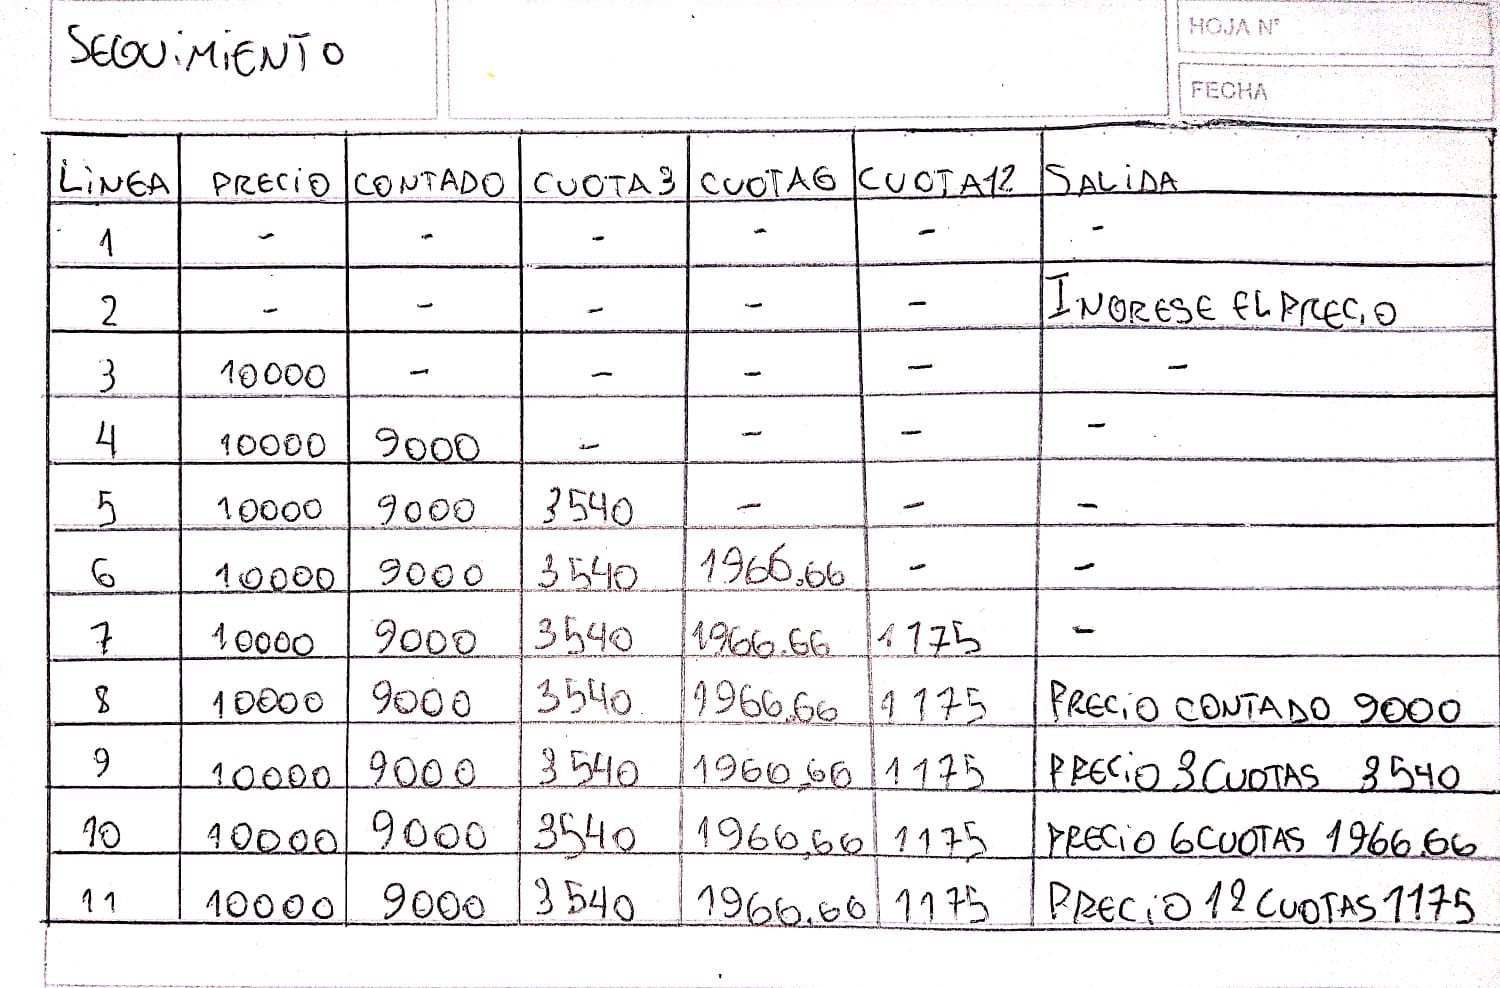 SEGUIMIENTO
HOJA N°
FECHA
LINEA PRECIO CONTADO CUOTA3 CUOTA6 CUOTA12 SALIDA
1 - - - - - -
2 - - - - - INGRESE EL PRECIO
3 10000 - - - - -
4 10000 9000 - - - -
5 10000 9000 3540 - - -
6 10000 9000 3540 1966.66 - -
7 10000 9000 3540 1966.66 1175 -
8 10000 9000 3540 1966.66 1175 PRECIO CONTADO 9000
9 10000 9000 3540 1966.66 1175 PRECIO 3 CUOTAS 3540
10 10000 9000 3540 1966.66 1175 PRECIO 6 CUOTAS 1966.66
11 10000 9000 3540 1966.66 1175 PRECIO 12 CUOTAS 1175